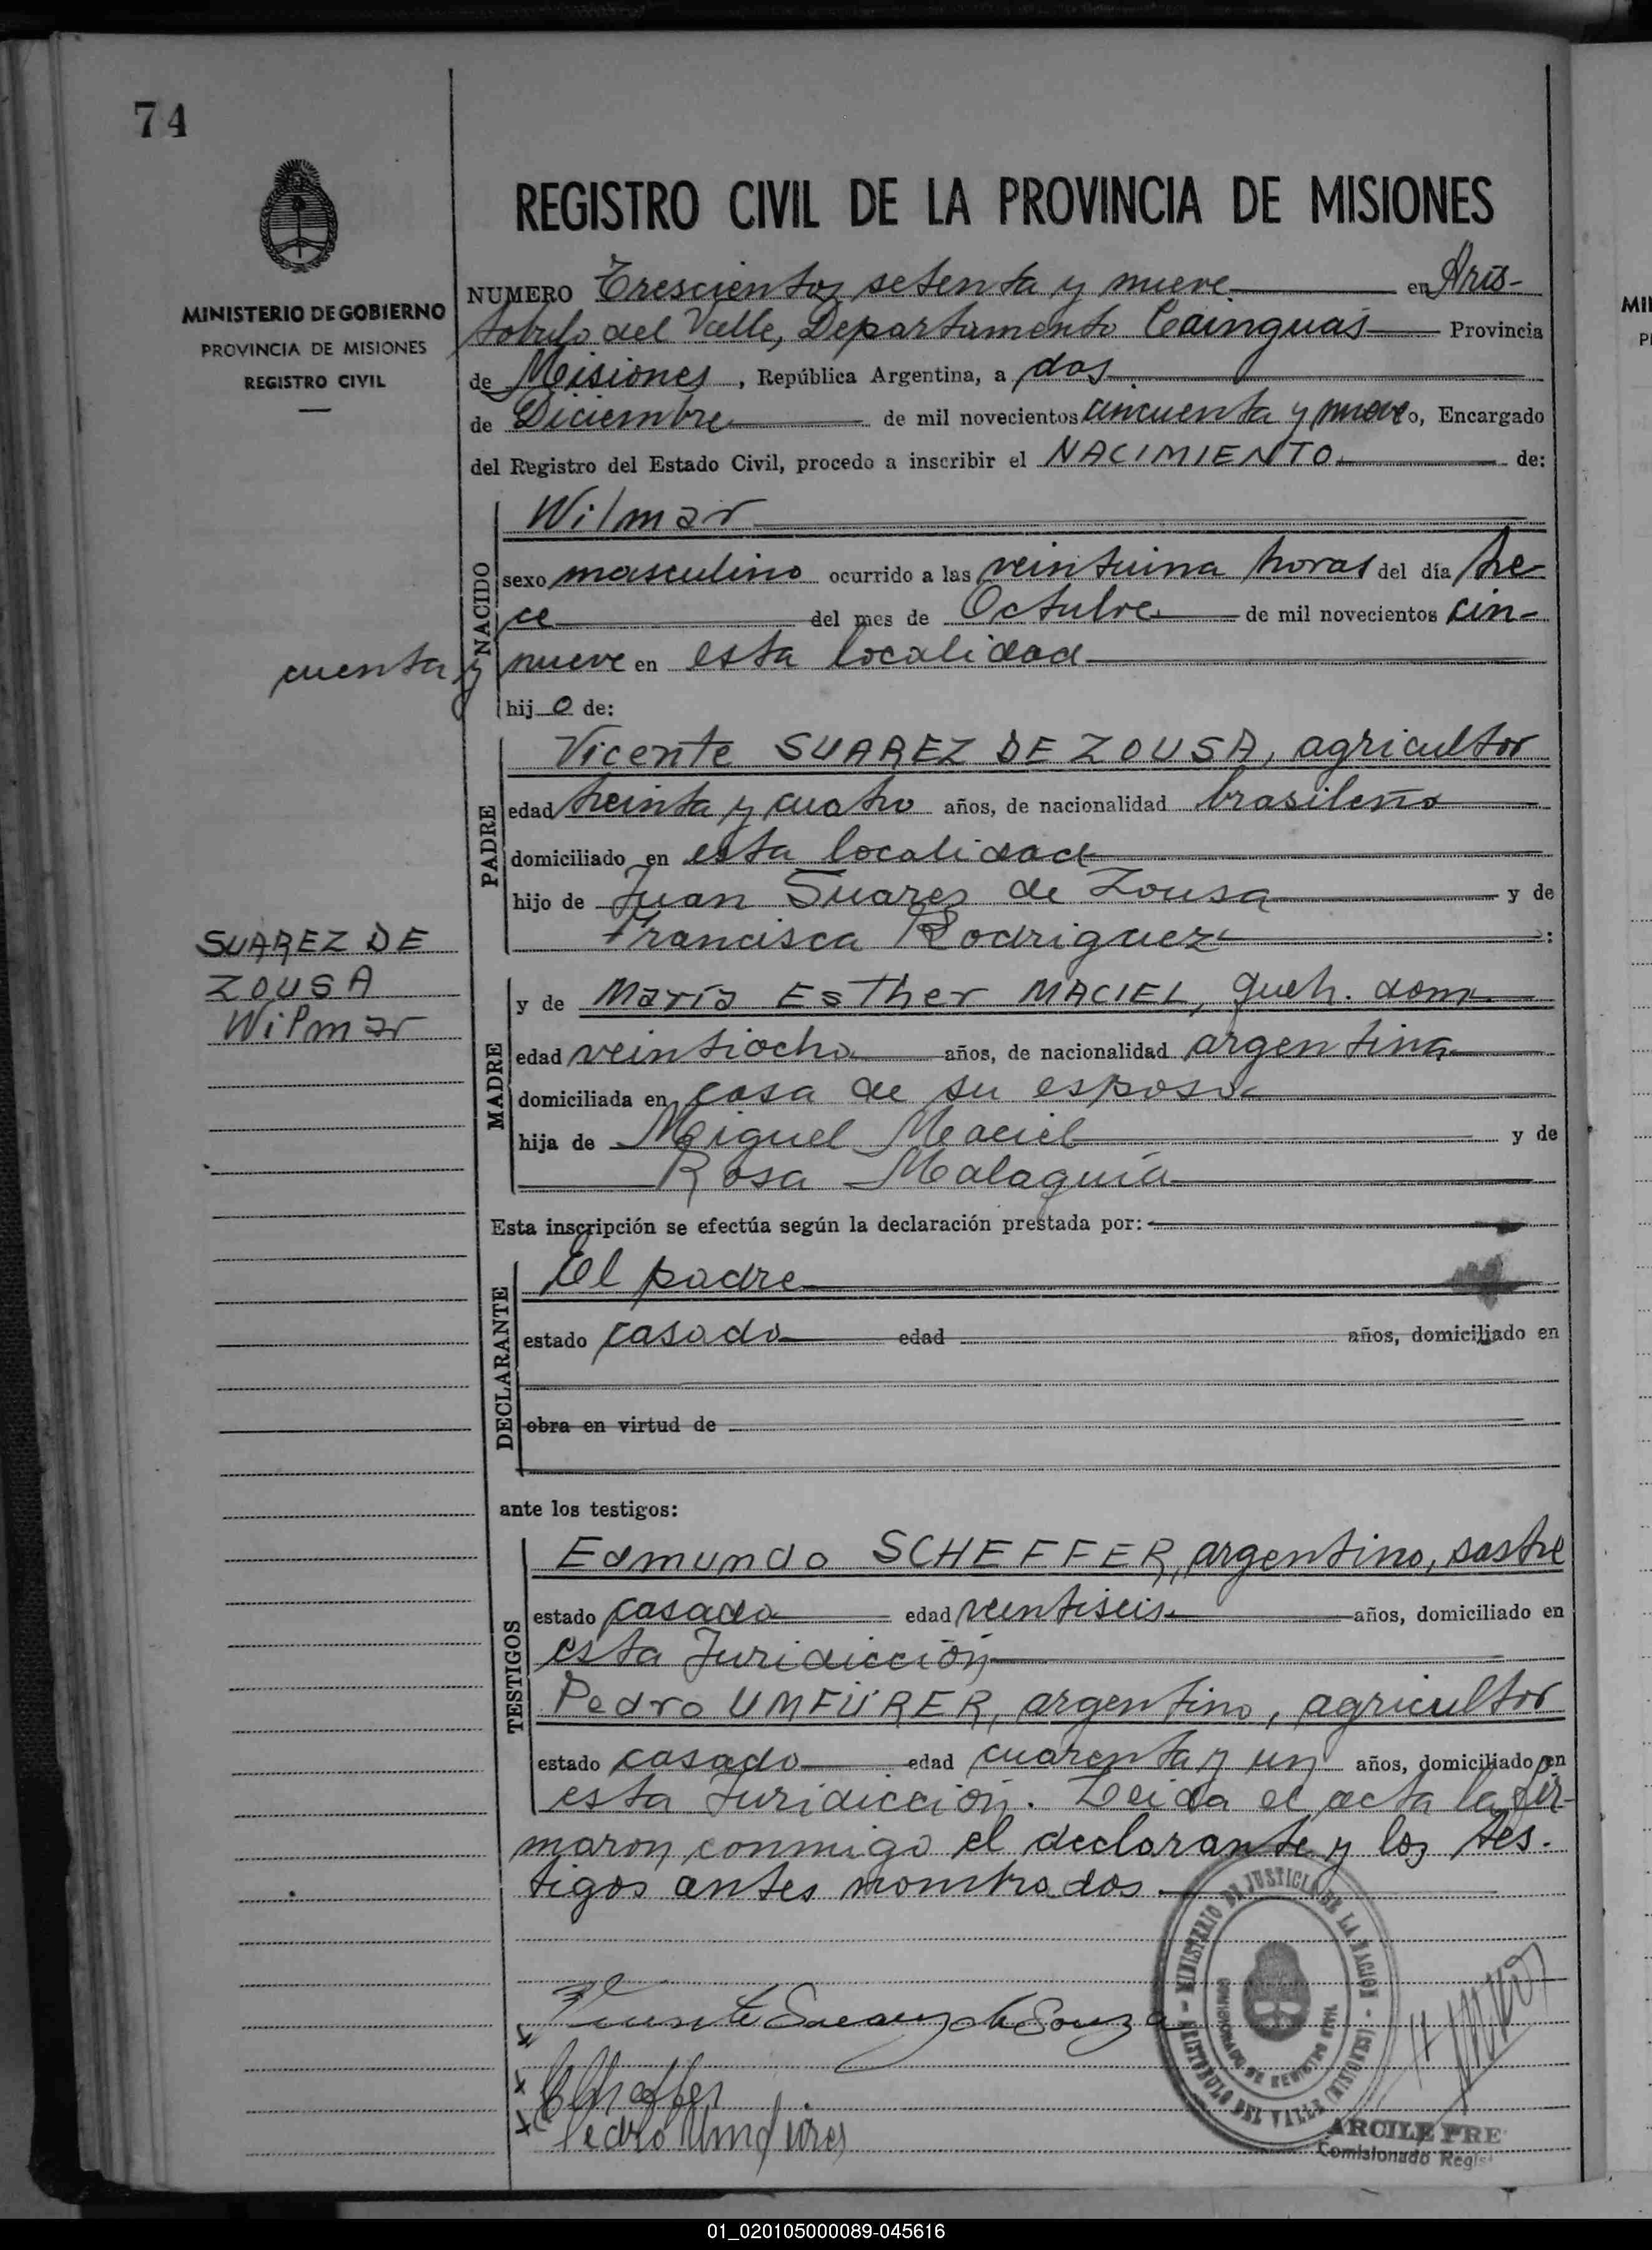 74
REGISTRO CIVIL DE LA PROVINCIA DE MISIONES
MINISTERIO DE GOBIERNO
PROVINCIA DE MISIONES
REGISTRO CIVIL
NUMERO Trescientos setenta y nueve en Aris-
tobulo del Valle, Departamento Cainguás Provincia
de Misiones, República Argentina, a dos
de Diciembre de mil novecientos cincuenta y nueve o, Encargado
del Registro del Estado Civil, procedo a inscribir el NACIMIENTO de:
NACIDO
Wilmar
sexo masculino ocurrido a las veintiuna horas del día tre-
ce del mes de Octubre de mil novecientos cin-
cuenta y nueve en esta localidad
hijo de:
PADRE
Vicente SUAREZ DE ZOUSA, agricultor
edad treinta y cuatro años, de nacionalidad brasileño
domiciliado en esta localidad
hijo de Juan Suares de Zousa y de
Francisca Rodriguez :
SUAREZ DE
ZOUSA
Wilmar
MADRE
y de María Esther MACIEL, queh. dom.
edad veintiocho años, de nacionalidad argentina
domiciliada en casa de su esposo
hija de Miguel Maciel y de
Rosa Malaquia
Esta inscripción se efectúa según la declaración prestada por:
DECLARANTE
El padre
estado casado edad años, domiciliado en
obra en virtud de
ante los testigos:
TESTIGOS
Edmundo SCHEFFER, argentino, sastre
estado casado edad veintiseis años, domiciliado en
esta Juridicción
Pedro UMFÜRER, argentino, agricultor
estado casado edad cuarenta y un años, domiciliado en
esta Juridicción. Leida el acta la fir-
maron conmigo el declarante y los tes-
tigos antes nombrados.
MINISTERIO DE JUSTICIA DE LA NACION
ARISTOBULO DEL VALLE (MISIONES)
COMISIONADO DE REGISTRO CIVIL
Vicente Suarez de Souza
Pedro Umfürer
ARCILE PRE
Comisionado Regis
01_020105000089-045616